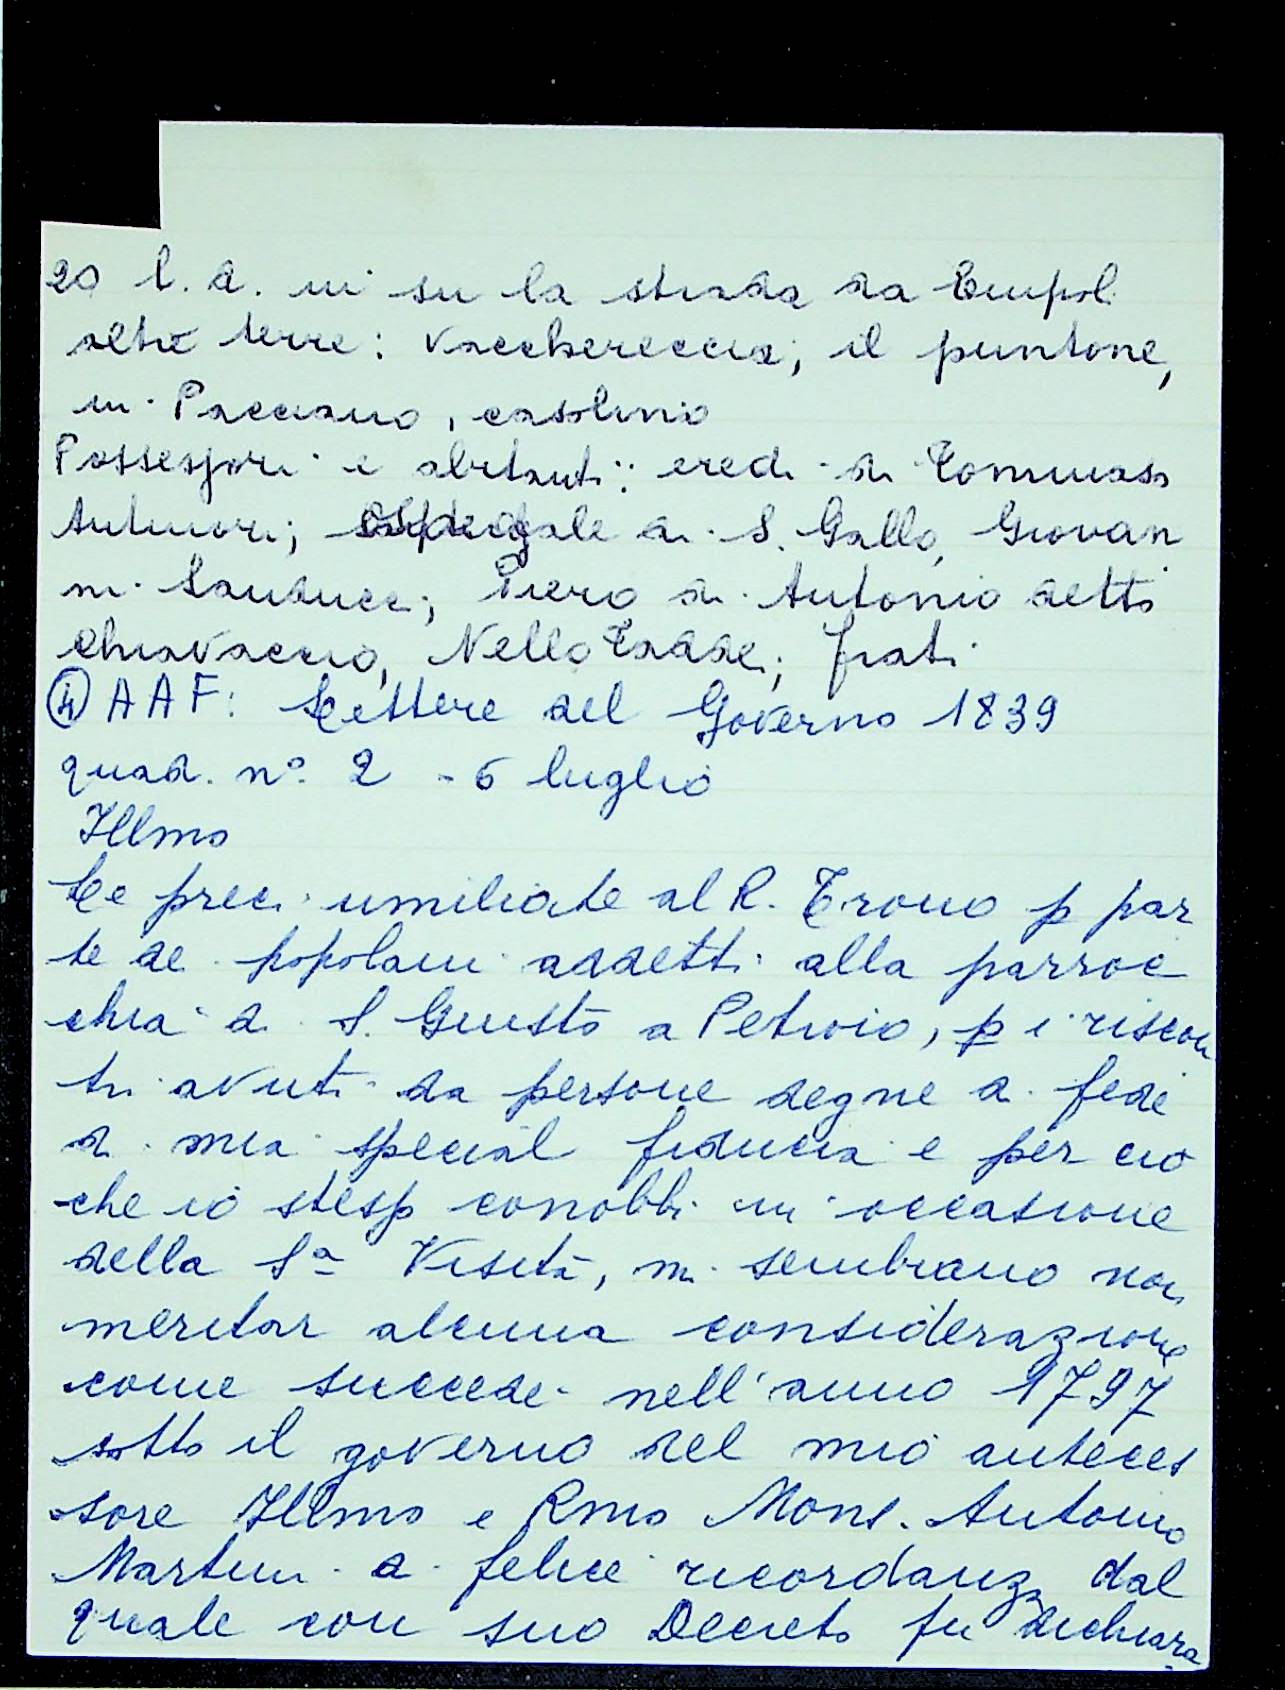 20 l. d. in su la strada da Empoli
altre terre: Vacchereccia, il puntone,
in Pacciano, casolino
Possessori e abitanti: eredi di Tommaso
Antinori; ospedale di S. Gallo, Giovan
ni Landucci; Piero di Antonio detto
Chiavaccio, Nello Taddei; frati
④ AAF: Lettere del Governo 1839
quad. nº 2 - 6 luglio
Illmo
Le preci umiliate al R. Trono p par
te de popolani addetti alla parroc
chia di S. Giusto a Petroio, p i riscon
tri avuti da persone degne di fede
di mia special fiducia e per ciò
che io stesso conobbi in occasione
della Sª Visita, mi sembrano non
meritar alcuna considerazione
come succede nell'anno 1797
sotto il governo del mio anteces
sore Illmo e Rmo Mons. Antonio
Martini di felice ricordanza dal
quale con suo Decreto fu dichiara